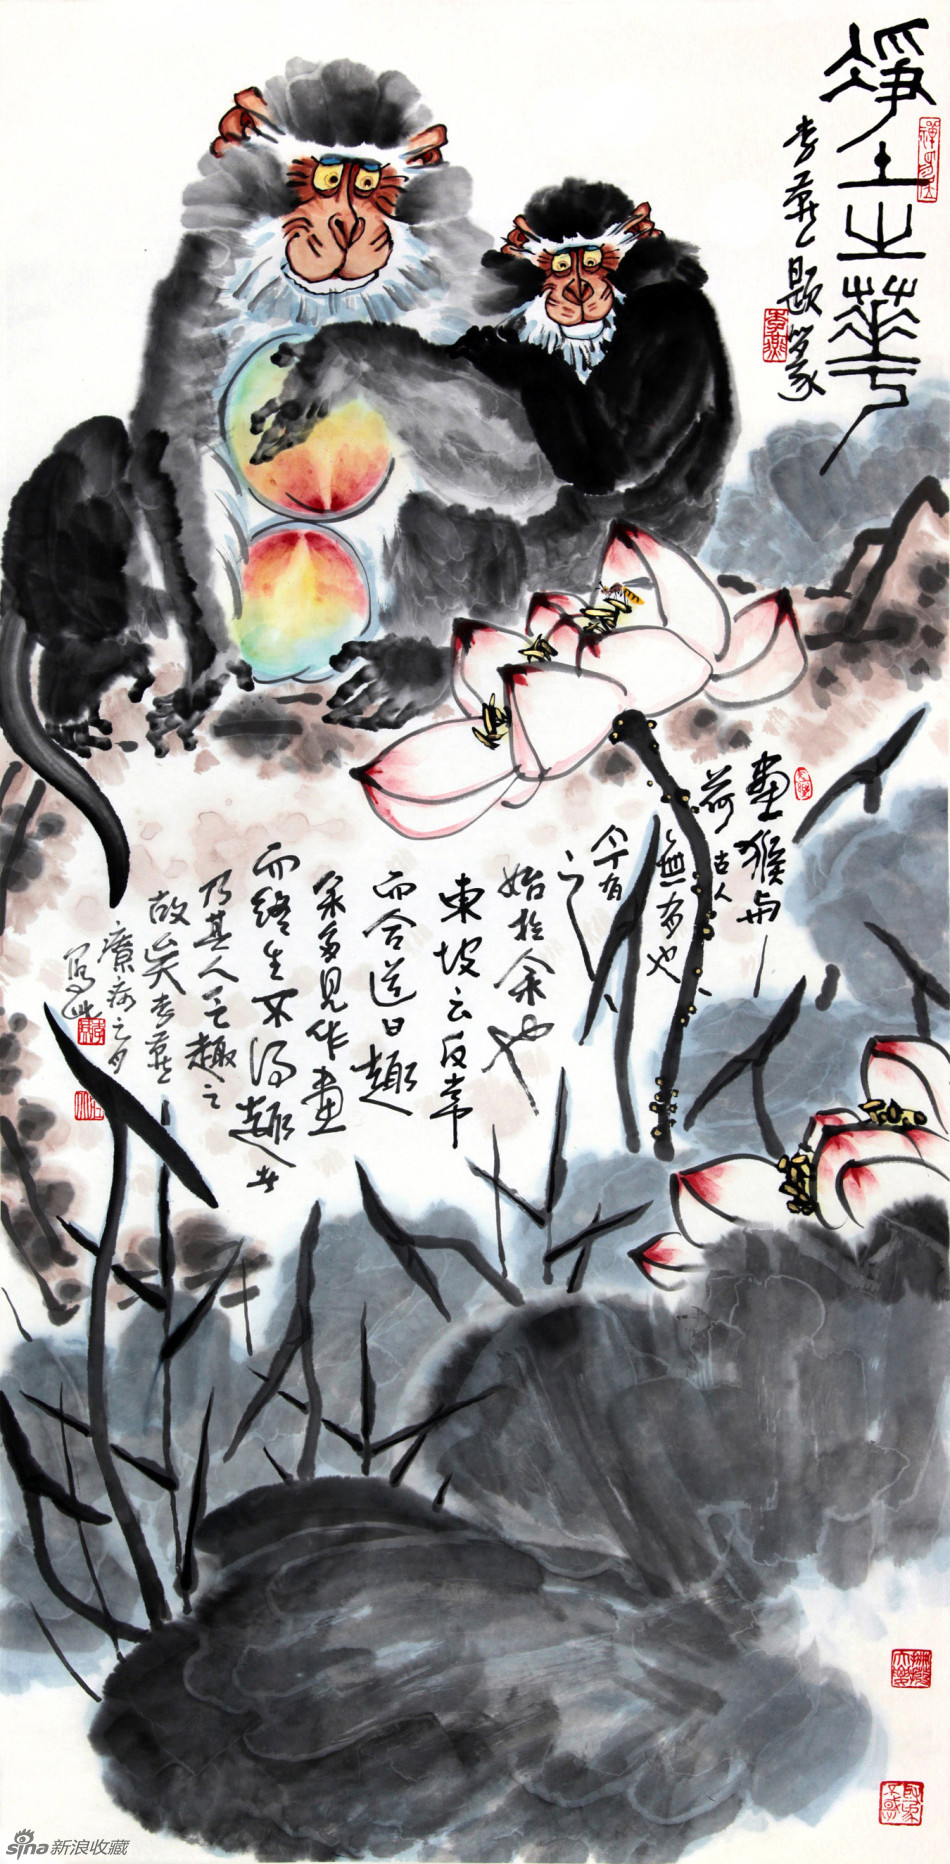 净土之華
李燕题篆
画猴与
荷古人
无有也
今有
之
始於余也
東坡云反常
而合道曰趣
余多見作画
而終生不得趣者
乃其人无趣之
故矣李燕
寫此
sina新浪收藏